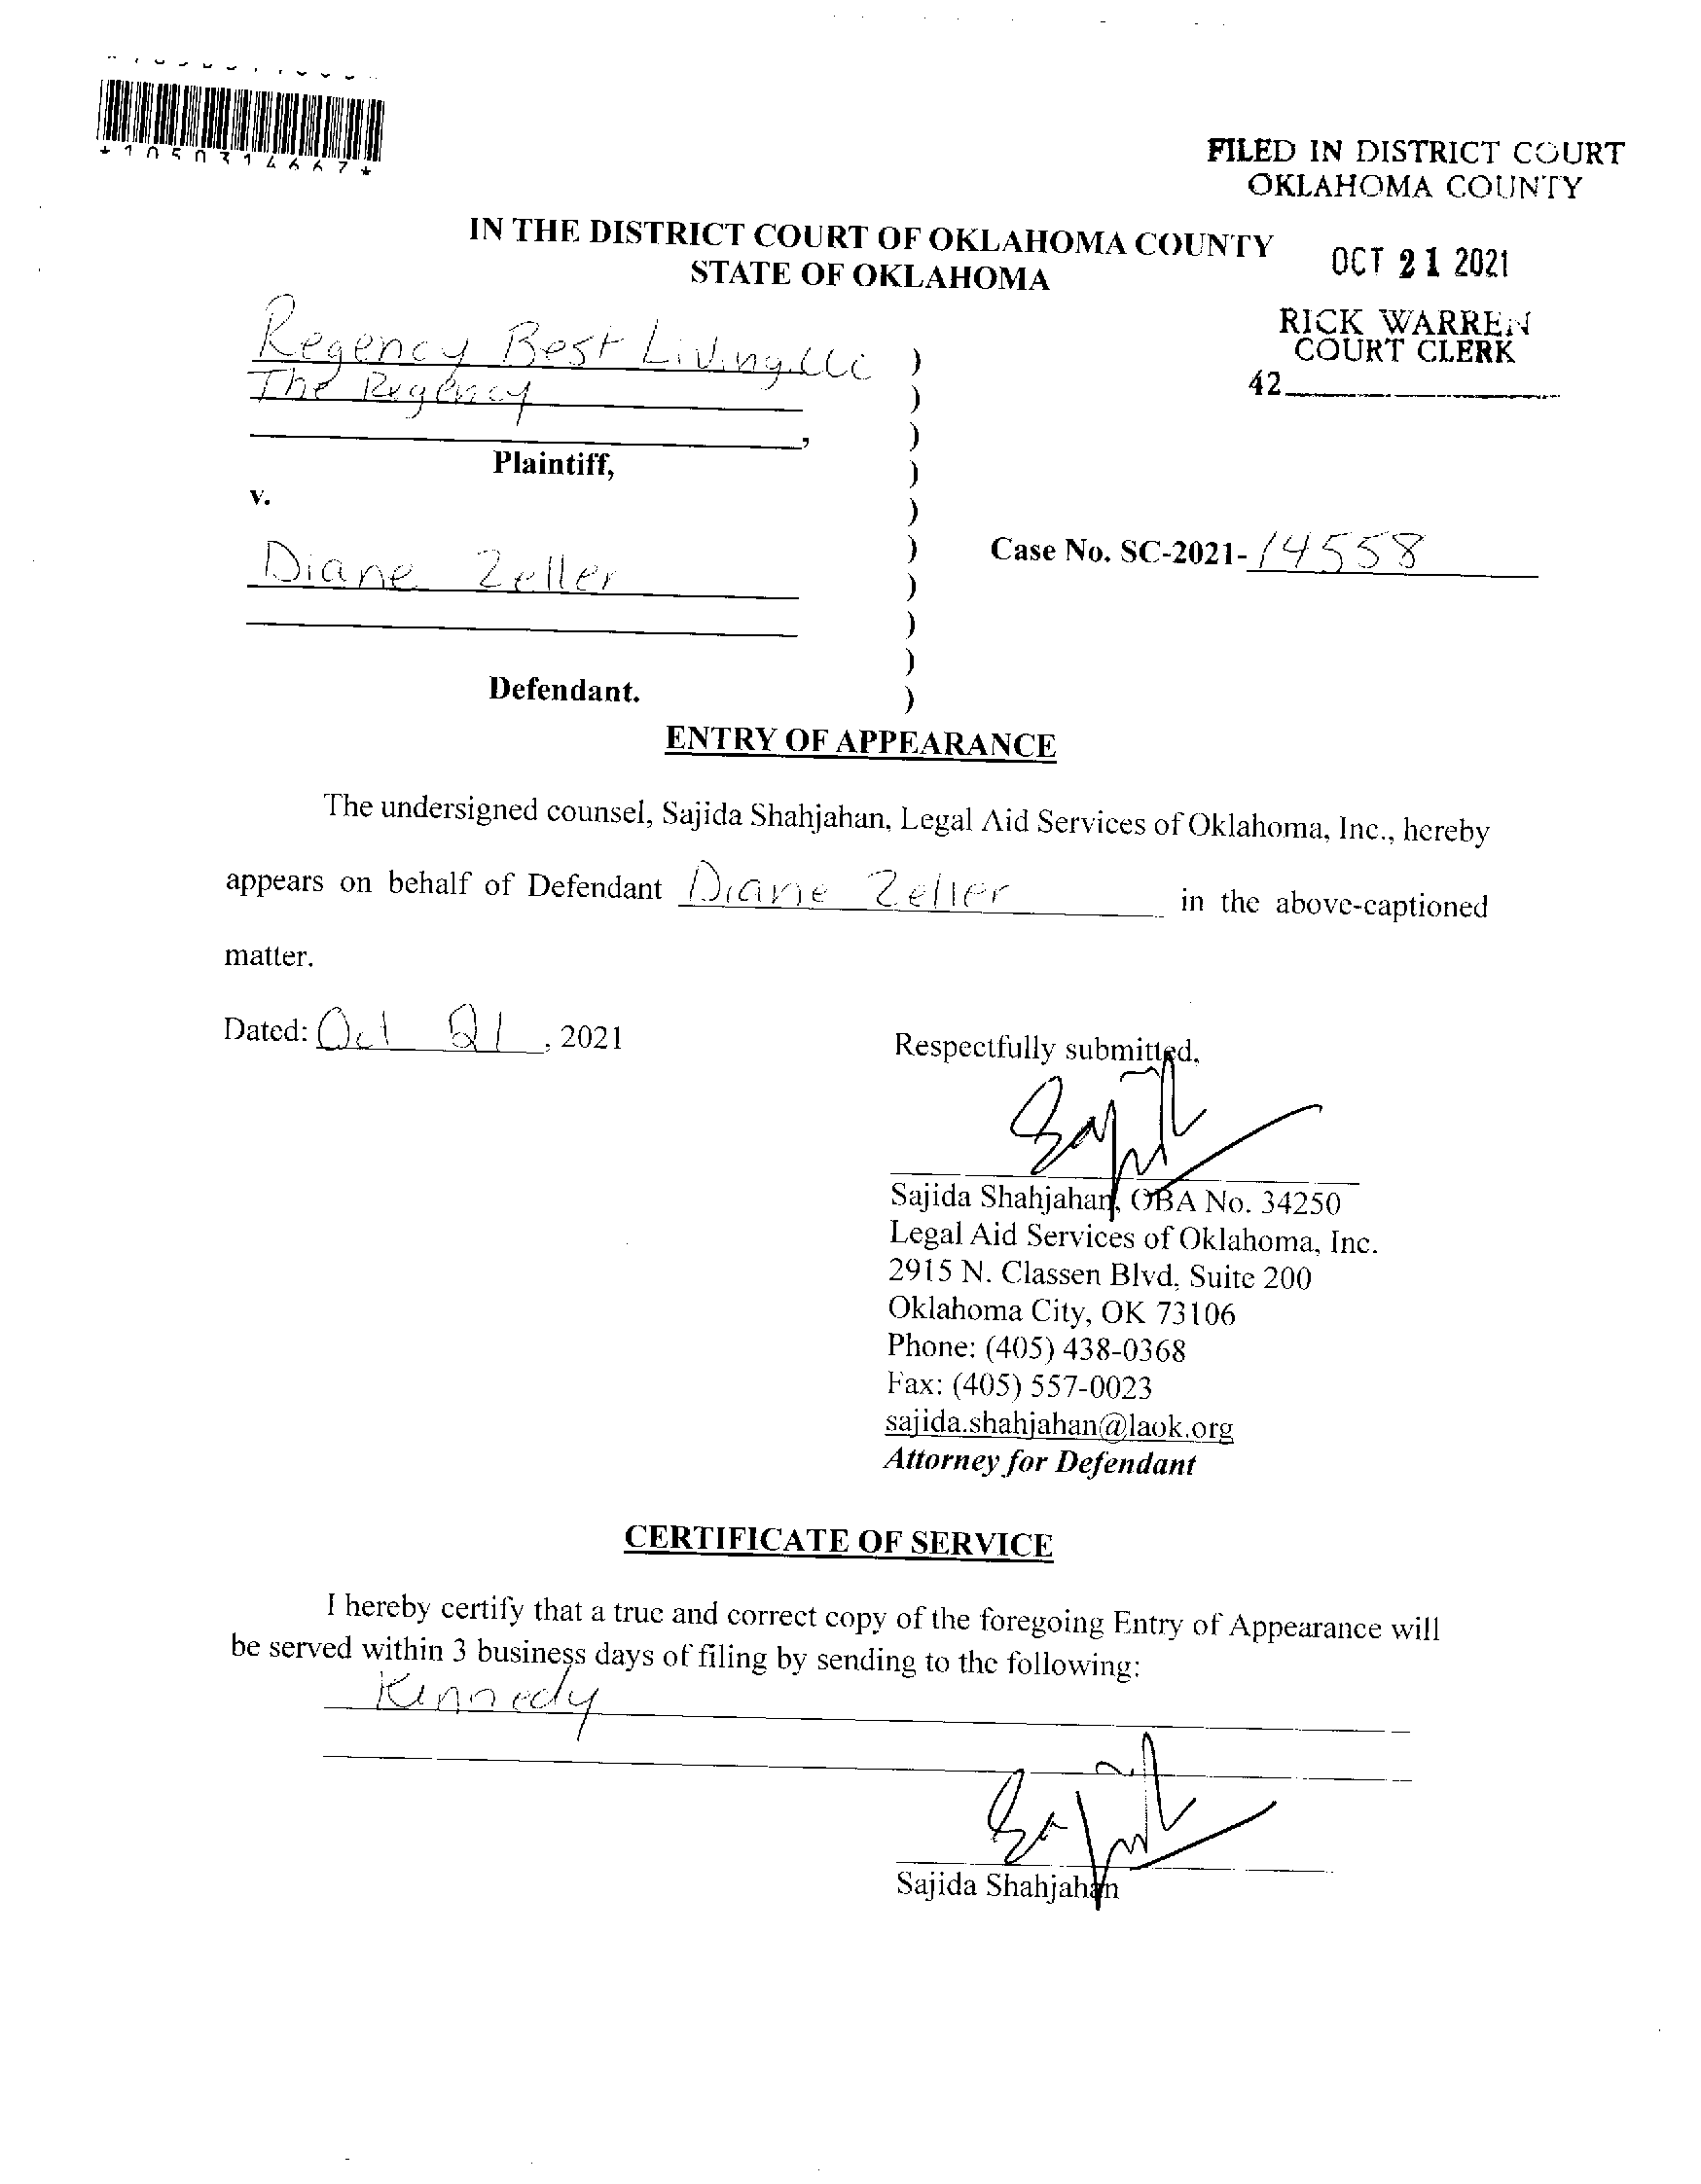 *1050314667*
FILED IN DISTRICT COURT
OKLAHOMA COUNTY
IN THE DISTRICT COURT OF OKLAHOMA COUNTY
STATE OF OKLAHOMA
OCT 21 2021
RICK WARREN
COURT CLERK
42
Regency Best Living LLC )
The Regency )
, )
Plaintiff, )
v. )
) Case No. SC-2021-14558
Diane Zeller )
)
)
Defendant. )
ENTRY OF APPEARANCE
The undersigned counsel, Sajida Shahjahan, Legal Aid Services of Oklahoma, Inc., hereby
appears on behalf of Defendant Diane Zeller in the above-captioned
matter.
Dated: Oct 21, 2021
Respectfully submitted,
Sajida Shahjahan, OBA No. 34250
Legal Aid Services of Oklahoma, Inc.
2915 N. Classen Blvd, Suite 200
Oklahoma City, OK 73106
Phone: (405) 438-0368
Fax: (405) 557-0023
sajida.shahjahan@laok.org
Attorney for Defendant
CERTIFICATE OF SERVICE
I hereby certify that a true and correct copy of the foregoing Entry of Appearance will
be served within 3 business days of filing by sending to the following:
Kennedy
Sajida Shahjahan